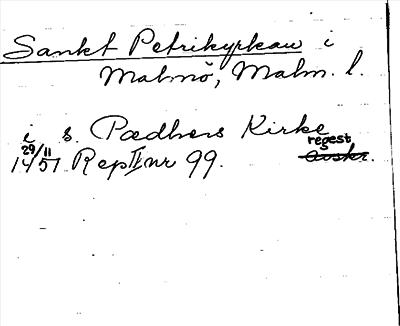 Sankt Petrikyrkan i
Malmö, Malm. l.
i s. Pædhers Kirke
29/11 regest
1451 Rep II nr 99. avskr.